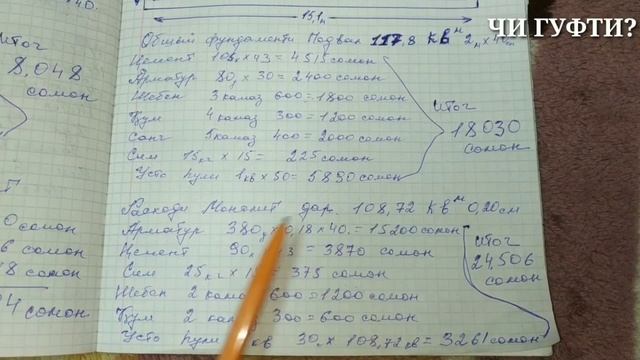 ЧИ ГУФТИ?
15,1м
Итог
8,048
сомон
Общый фундаменти Подвал 117,8 кв м 2м х 40см
Цемент 105х х 43 = 4515 сомон
Арматур 80х х 30 = 2400 сомон
Шебен 3 камаз 600 = 1800 сомон
Кум 4 камаз 300 = 1200 сомон
Санг 5 камаз 400 = 2000 сомон
Сим 15кг х 15 = 225 сомон
Усто пули 1кв х 50 = 5890 сомон
Итог
18030
сомон
Расходи Монолит дар. 108,72 кв м 0,20см
Арматур 380 0,18 х 40. = 15200 сомон
Цемент 90 = 3870 сомон
Сим 25кг х = 375 сомон
Шебен 2 камаз 600 = 1200 сомон
Кум 2 камаз 300 = 600 сомон
Усто пули кв 30х 108,72кв = 3261 сомон
Итог
24,506
сомон
0 сомон
сомон
8 сомон
4 сомон